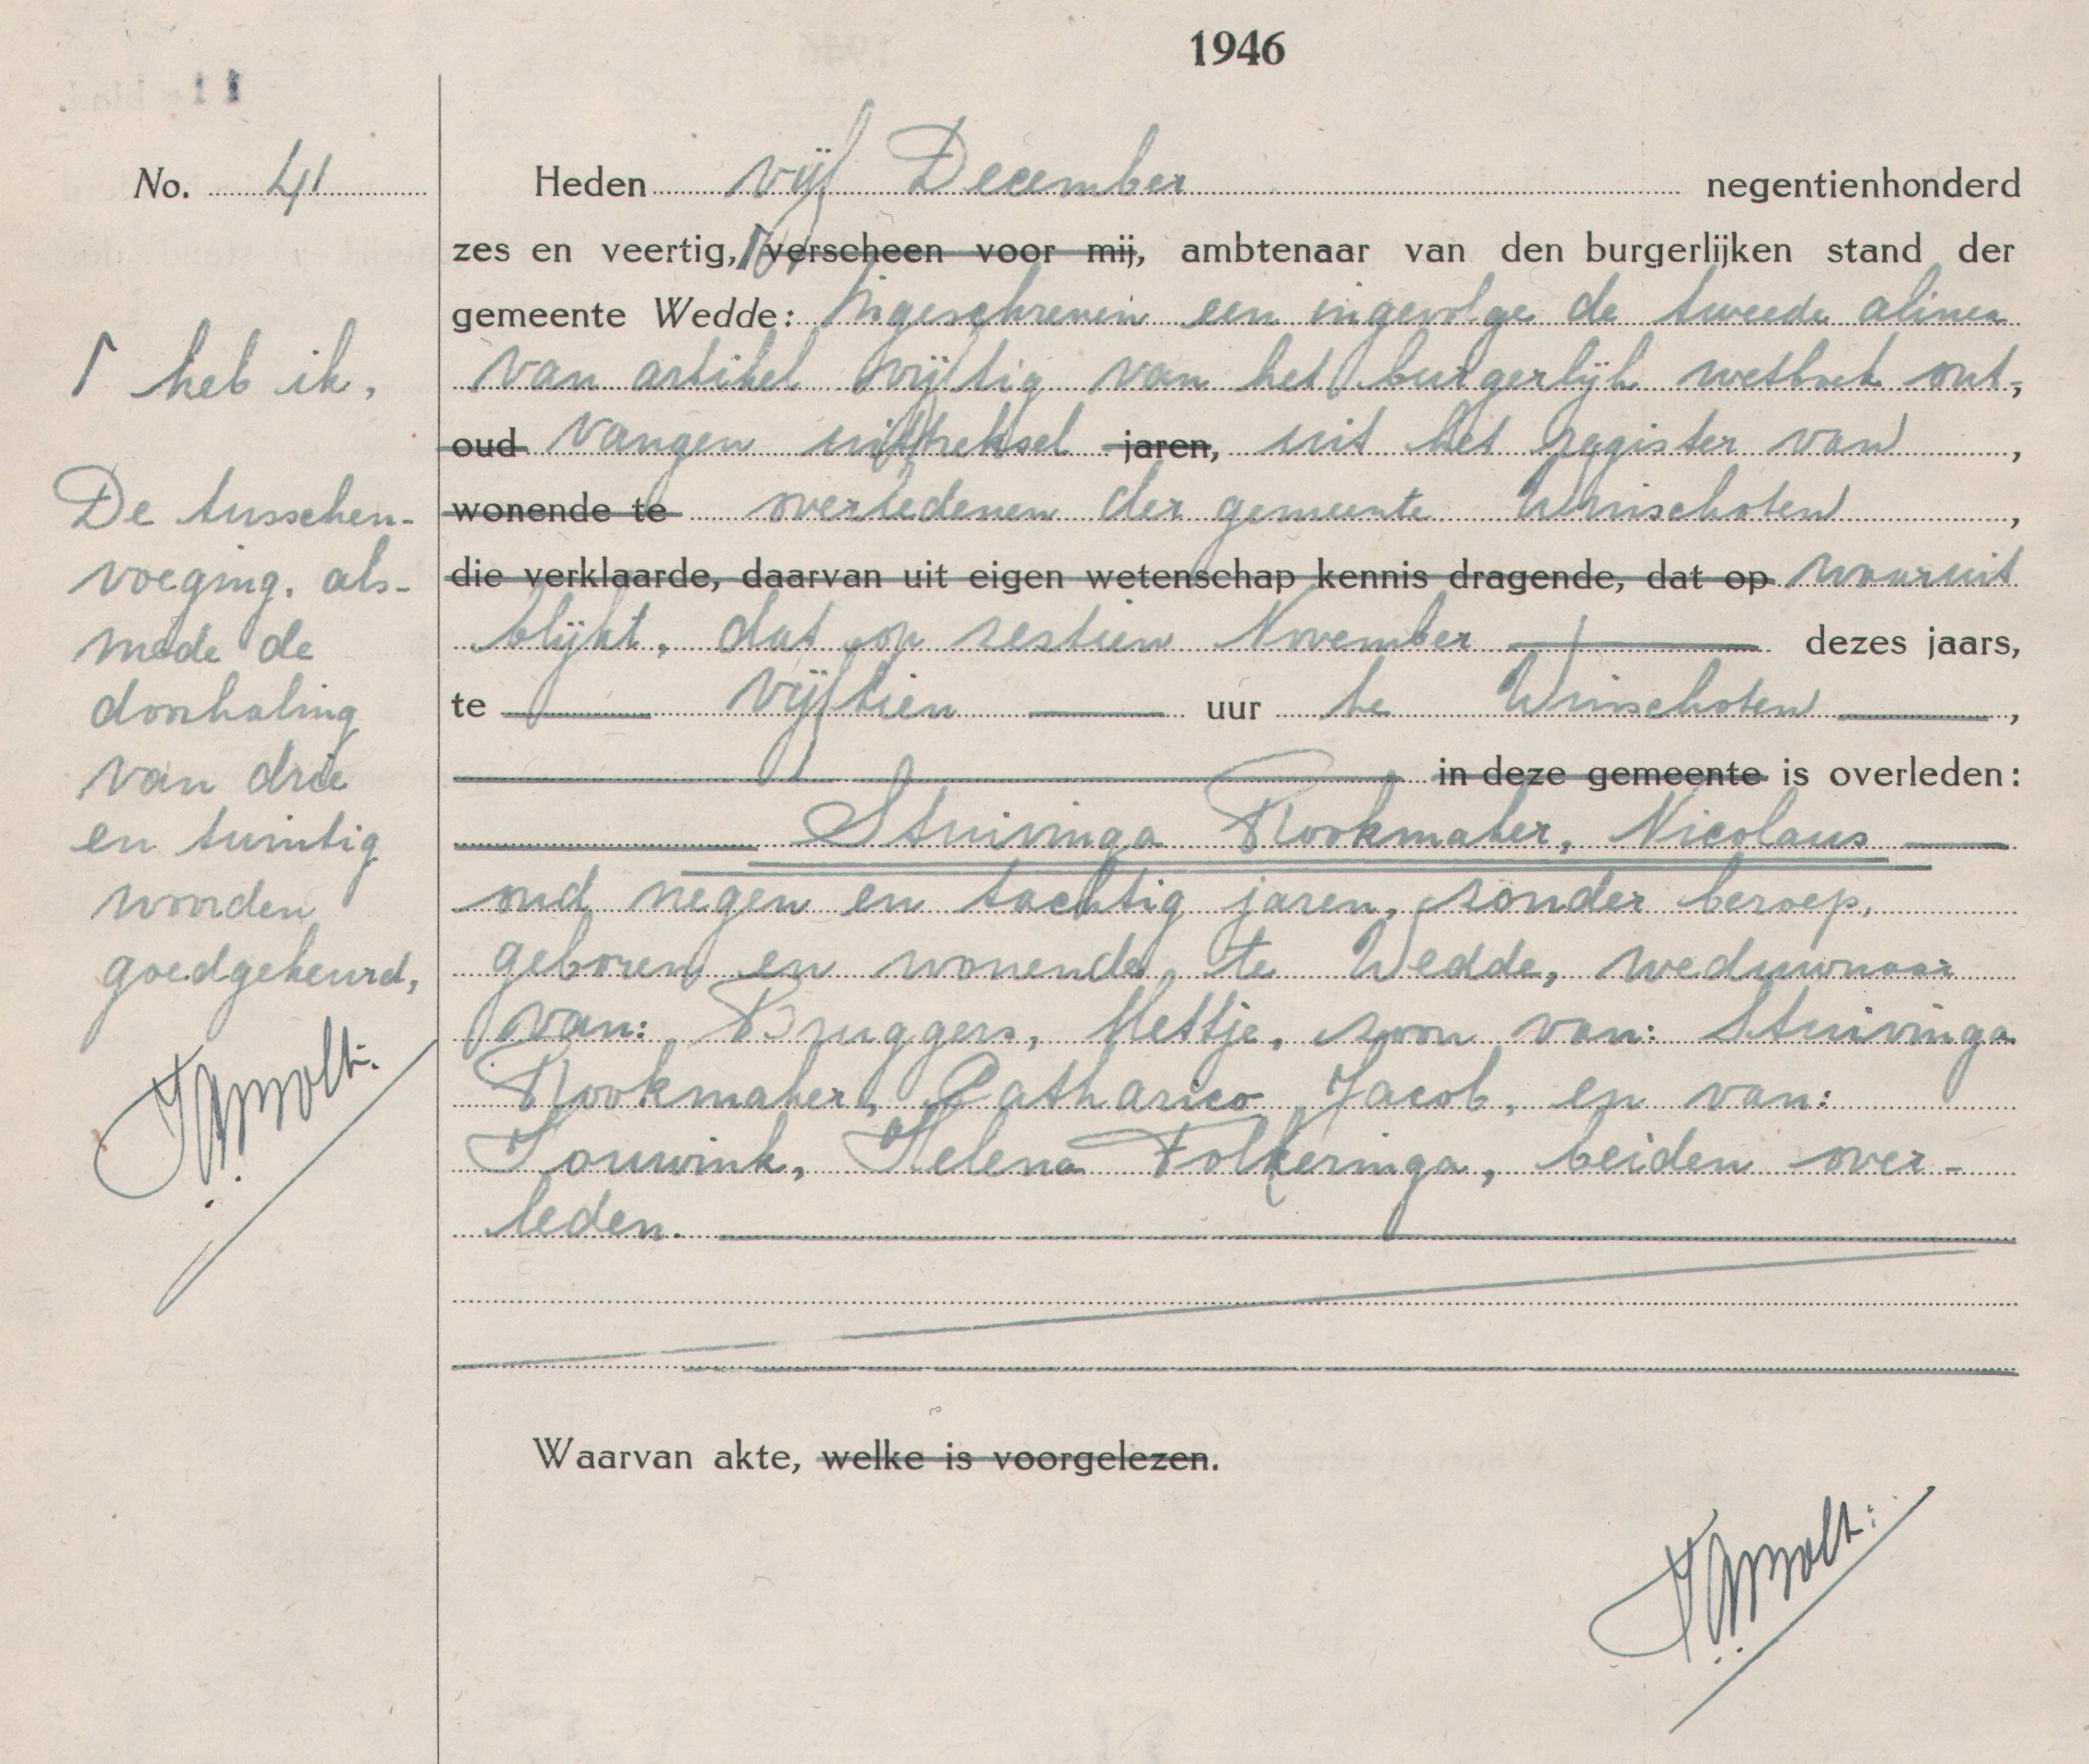 1946
No. 41
Heden vijf December negentienhonderd
zes en veertig, ſ verscheen voor mij, ambtenaar van den burgerlijken stand der
gemeente Wedde: ingeschreven een ingevolge de tweede alinea
van artikel vijftig van het burgerlijk wetboek ont-,
oud vangen uittreksel jaren, uit het register van,
wonende te overledenen der gemeente Winschoten,
die verklaarde, daarvan uit eigen wetenschap kennis dragende, dat op waaruit
blijkt, dat op zestien November dezes jaars,
te vijftien uur te Winschoten,
in deze gemeente is overleden:
Stuivinga Rookmaker, Nicolaus
oud negen en tachtig jaren, zonder beroep,
geboren en wonende, te Wedde, weduwnaar
van: Bruggers, Mettje, zoon van: Stuivinga
Rookmaker, Catharico Jacob, en van:
Louwink, Helena Folkeringa, beiden over-
leden.
Waarvan akte, welke is voorgelezen.
ſ heb ik,
De tusschen-
voeging, als-
mede de
doorhaling
van drie
en twintig
woorden
goedgekeurd,